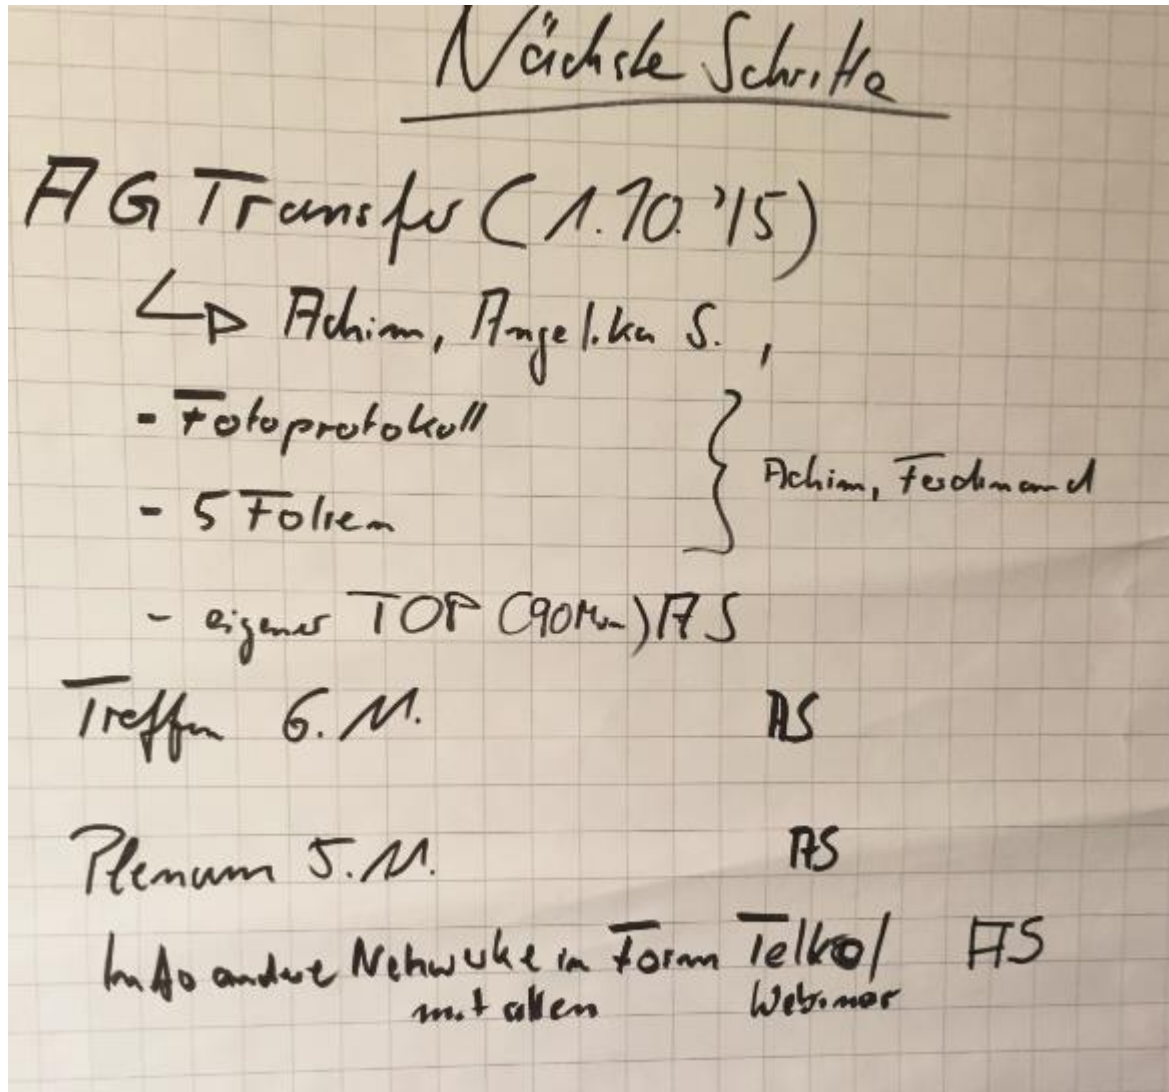 Nächste Schritte
AG Transfer (1.10.'15)
Achim, Angelika S.,
- Fotoprotokoll
- 5 Folien
Achim, Ferdinand
- eigener TOP (90 Min) AS
Treffen 6.11. AS
Plenum 5.11. AS
Info andere Netzwerke in Form Telko/ AS
mit allen Webinar